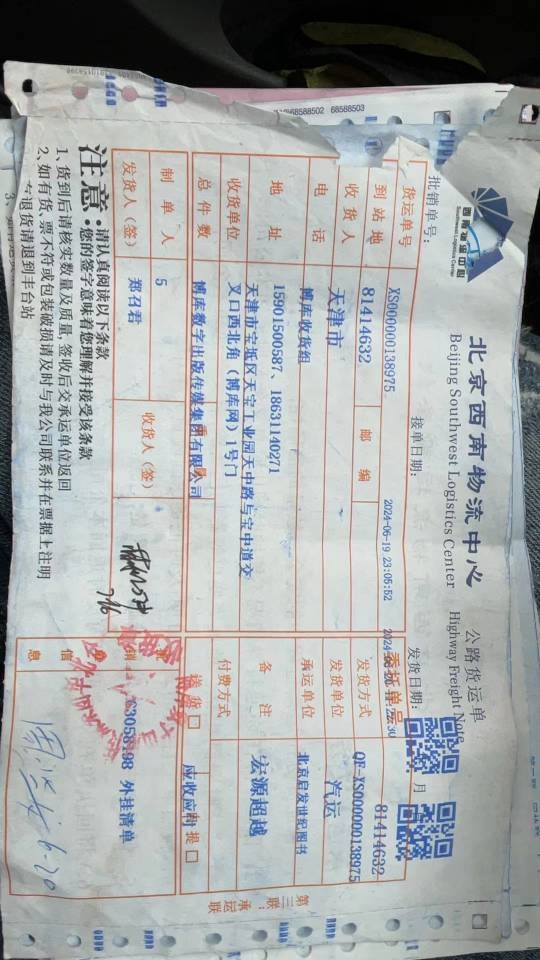 68588502 68588503
西南物流中心
Southwest Logistics Center
北京西南物流中心
Beijing Southwest Logistics Center
公路货运单
Highway Freight Note
批销单号：
接单日期：
2024-06-19 23:05:52
发货日期：
月
货运单号
XS000000138975
委托单号
81414632
到站地
81414632
邮编
发货方式
QF-XS000000138975
收货人
天津市
发货单位
汽运
电话
博库收货组
承运单位
北京启发世纪图书
15901500587、18631140271
地址
天津市宝坻区天宝工业园天中路与宝中道交
叉口西北角（博库网）1号门
备注
宏源超越
收货单位
博库数字出版传媒集团有限公司
付费方式
总件数
送货
自提
应收应付
制单人
5
收货人（签）
7/6
发货人（签）
郑召君
外挂清单
信
息
6-20
注意：
请认真阅读以下条款
您的签字意味着您理解并接受该条款
1、货到后请核实数量及质量，签收后交承运单位返回
2、如有货、票不符或包装破损请及时与我公司联系并在票据上注明
退货请退到丰台站
第三联：承运联